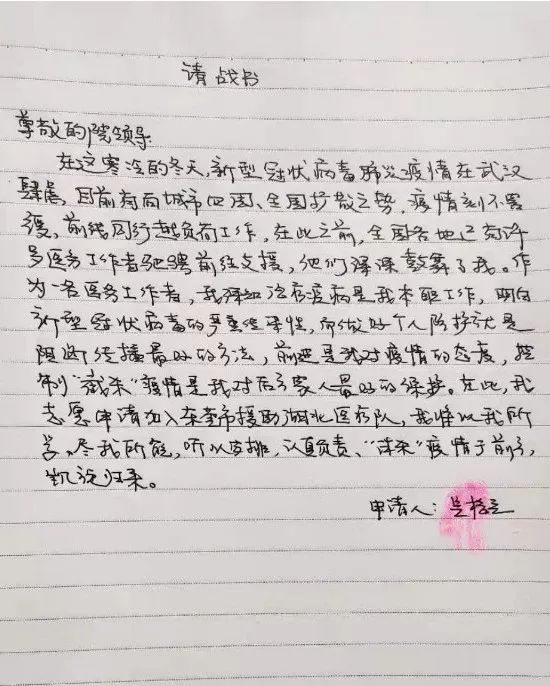 请战书
尊敬的院领导
在这寒冷的冬天,新型冠状病毒肺炎疫情在武汉
肆虐,目前有向城市四周、全国扩散之势,疫情刻不容
缓,前线同行超负荷工作,在此之前,全国各地已有许
多医务工作者驰骋前线支援,他们深深鼓舞了我。作
为一名医务工作者,我深知治病疫病是我本职工作,明白
新型冠状病毒的严重性,而做好个人防护就是
阻断传播最好的方法,前进是我对疫情的态度,控
制"截杀"疫情是我对后方家人最好的保护。在此,我
志愿申请加入东莞市援助湖北医疗队,我将以我所
学、尽我所能,听从安排,认真负责、疫情于前方,
凯旋归来。
申请人: